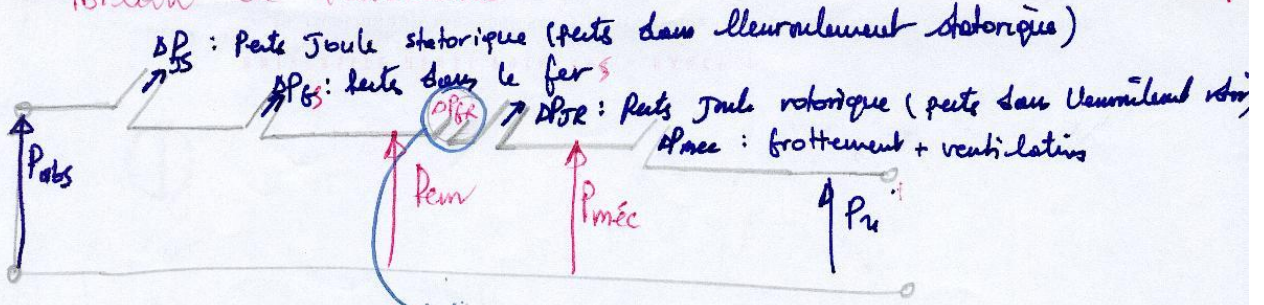 ΔPJS : Perte Joule statorique (perts dans l'enroulement statorique)
ΔPfS : Perts dans le fer s
ΔPfR
ΔPJR : Perts Joule rotorique (perte dans
ΔPmec : frottement + ventilation
Pabs
Pem
Pméc
Pu